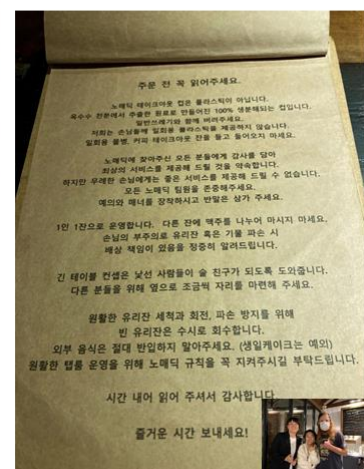 주문 전 꼭 읽어주세요.
노매딕 테이크아웃 컵은 플라스틱이 아닙니다.
옥수수 전분에서 추출한 원료로 만들어진 100% 생분해되는 컵입니다.
일반쓰레기와 함께 버려주세요.
저희는 손님들께 일회용 플라스틱을 제공하지 않습니다.
일회용 물병, 커피 테이크아웃 잔을 들고 들어오지 마세요.
노매딕에 찾아주신 모든 분들에게 감사를 담아
최상의 서비스를 제공해 드릴 것을 약속합니다.
하지만 무례한 손님에게는 좋은 서비스를 제공해 드릴 수 없습니다.
모든 노매딕 팀원을 존중해주세요.
예의와 매너를 장착하시고 반말은 삼가 주세요.
1인 1잔으로 운영합니다. 다른 잔에 맥주를 나누어 마시지 마세요.
손님의 부주의로 유리잔 혹은 기물 파손 시
배상 책임이 있음을 정중히 알려드립니다.
긴 테이블 컨셉은 낯선 사람들이 술 친구가 되도록 도와줍니다.
다른 분들을 위해 옆으로 조금씩 자리를 마련해 주세요.
원활한 유리잔 세척과 회전, 파손 방지를 위해
빈 유리잔은 수시로 회수합니다.
외부 음식은 절대 반입하지 말아주세요. (생일케이크는 예외)
원활한 탭룸 운영을 위해 노매딕 규칙을 꼭 지켜주시길 부탁드립니다.
시간 내어 읽어 주셔서 감사합니다
즐거운 시간 보내세요!